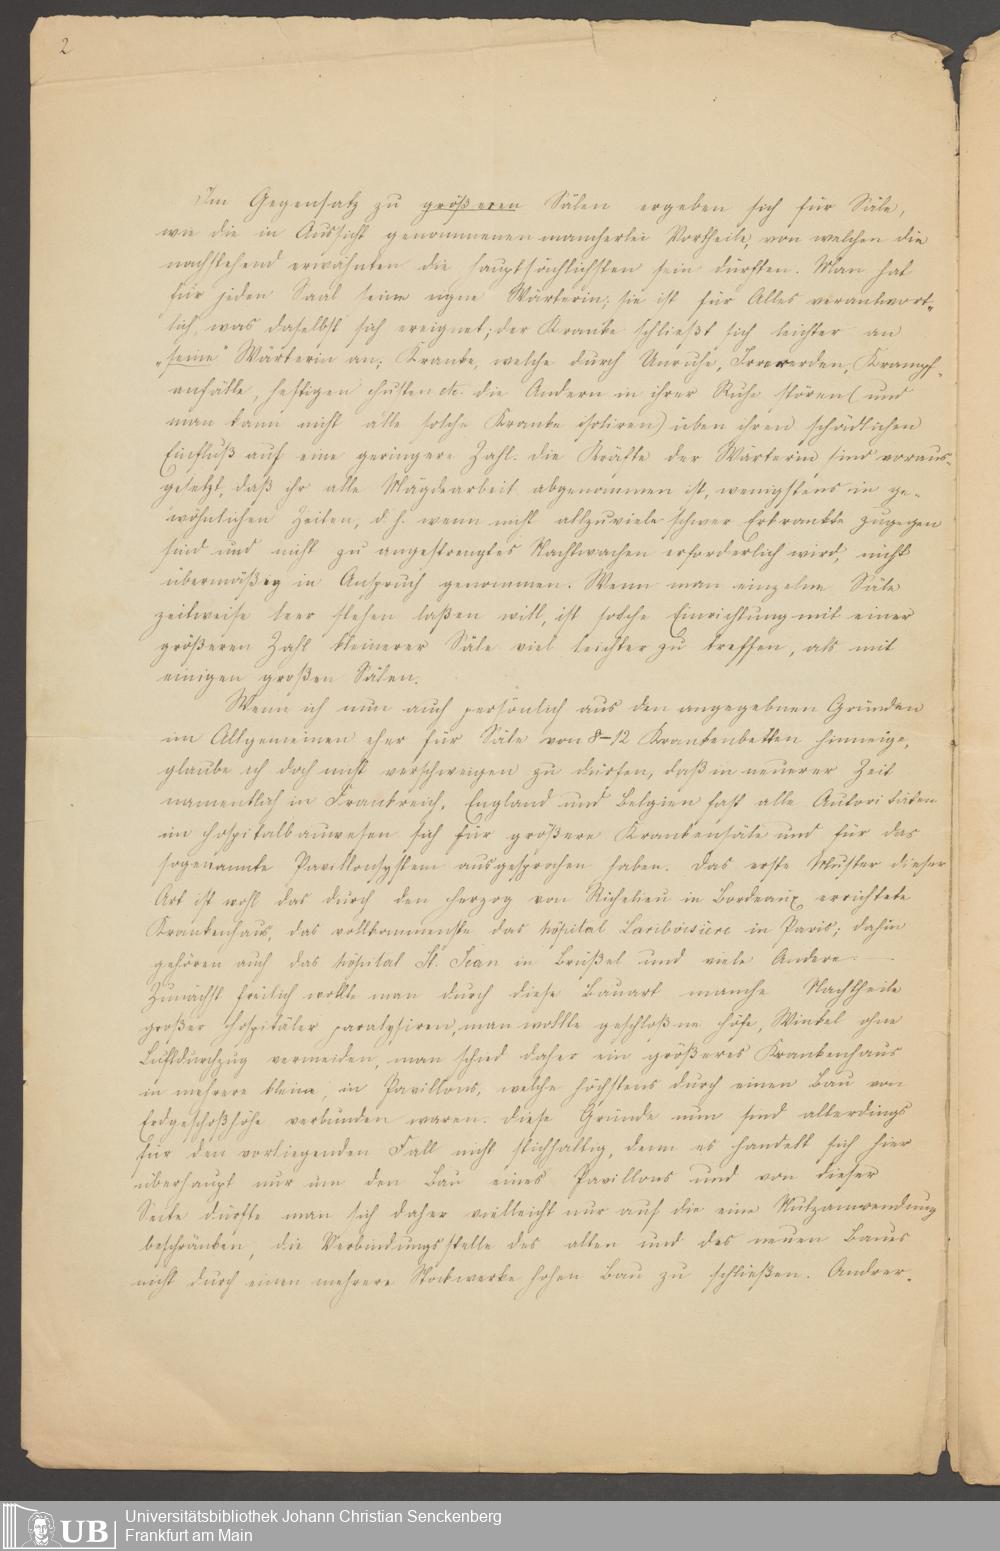 2
Im Gegensatz zu größeren Sälen ergeben sich für Säle,
wie die in Aussicht genommenen mancherlei Vortheile, von welchen die
nachstehend erwähnten die hauptsächlichsten sein dürften. Man hat
für jeden Saal seine eigne Wärterin; sie ist für Alles verantwort-
lich, was daselbst sich ereignet; der Kranke schließt sich leichter an
„seine" Wärterin an; Kranke, welche durch Unruhe, Irrewerden, Krampf-
anfälle, heftigen Husten etc. die Andern in ihrer Ruhe stören (und
man kann nicht alle solche Kranke isoliren) üben ihren schädlichen
Einfluß auf eine geringere Zahl. Die Kräfte der Wärterin sind voraus-
gesetzt, daß ihr alle Mägdearbeit abgenommen ist, wenigstens in ge-
wöhnlichen Zeiten, d. h. wenn nicht allzuviele schwer Erkrankte zugegen
sind und nicht zu angestrengtes Nachtwachen erforderlich wird, nicht
übermäßig in Anspruch genommen. Wenn man einzelne Säle
zeitweise leer stehen laßen will, ist solche Einrichtung mit einer
größeren Zahl kleinerer Säle viel leichter zu treffen, als mit
einigen großen Sälen.
Wenn ich nun auch persönlich aus den angegebnen Gründen
im Allgemeinen eher für Säle von 8–12 Krankenbetten hinneige,
glaube ich doch nicht verschweigen zu dürfen, daß in neuerer Zeit
namentlich in Frankreich, England und Belgien fast alle Autoritäten
im Hospitalbauwesen sich für größere Krankensäle und für das
sogenannte Pavillonsystem ausgesprochen haben. Das erste Muster dieser
Art ist wohl das durch den Herzog von Richelieu in Bordeaux errichtete
Krankenhaus, das vollkommenste das hôpital Lariboisière in Paris; dahin
gehören auch das hôpital St. Jean in Brüßel und viele Andere. —
Zunächst freilich wollte man durch diese Bauart manche Nachtheile
großer Hospitäler paralysiren, man wollte geschloßne Höfe, Winkel ohne
Luftdurchzug vermeiden, man schied daher ein größeres Krankenhaus
in mehrere kleine, in Pavillons, welche höchstens durch einen Bau von
Erdgeschoßhöhe verbunden waren. Diese Gründe nun sind allerdings
für den vorliegenden Fall nicht stichhaltig, denn es handelt sich hier
überhaupt nur um den Bau eines Pavillons und von dieser
Seite dürfte man sich daher vielleicht nur auf die eine Nutzanwendung
beschränken, die Verbindungsstelle des alten und des neuen Baues
nicht durch einen mehrere Stockwerke hohen Bau zu schließen. Andrer-
UB
Universitätsbibliothek Johann Christian Senckenberg
Frankfurt am Main